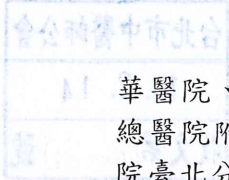 台北市中醫師公會
14
華醫院、
總醫院附
院臺北分